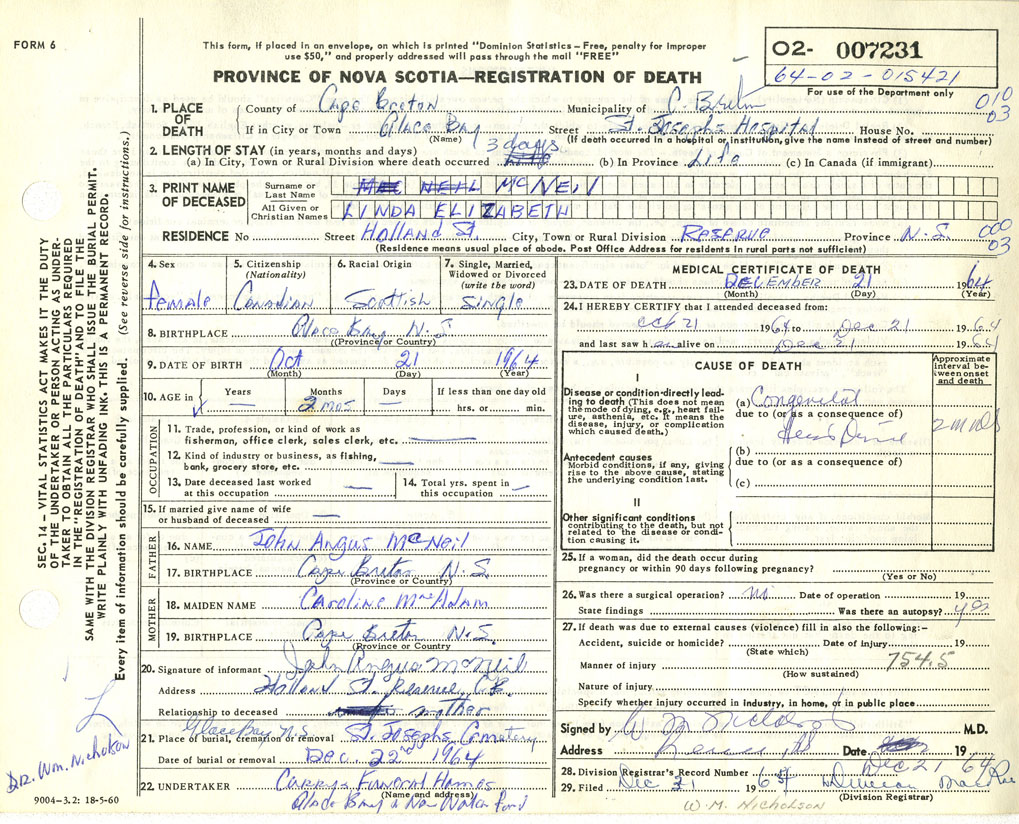 FORM 6
This form, if placed in an envelope, on which is printed "Dominion Statistics – Free, penalty for improper
use $50," and properly addressed will pass through the mail "FREE"
PROVINCE OF NOVA SCOTIA—REGISTRATION OF DEATH
02- 007231
64-02-015421
For use of the Department only
010
03
1. PLACE OF DEATH
County of Cape Breton Municipality of C. Breton
If in City or Town Glace Bay Street St. Joseph's Hospital House No.
(Name) (If death occurred in a hospital or institution, give the name instead of street and number)
2. LENGTH OF STAY (in years, months and days)
(a) In City, Town or Rural Division where death occurred 3 days (b) In Province Life (c) In Canada (if immigrant)
3. PRINT NAME OF DECEASED
Surname or Last Name MAC NEIL McNEil
All Given or Christian Names LINDA ELIZABETH
RESIDENCE No Street Holland St. City, Town or Rural Division Reserve Province N.S.
000
03
(Residence means usual place of abode. Post Office Address for residents in rural parts not sufficient)
4. Sex female
5. Citizenship (Nationality) Canadian
6. Racial Origin Scottish
7. Single, Married, Widowed or Divorced (write the word) Single
8. BIRTHPLACE Glace Bay N.S
(Province or Country)
9. DATE OF BIRTH Oct 21 1964
(Month) (Day) (Year)
10. AGE in Years — Months 2 mos Days — If less than one day old
hrs. or min.
OCCUPATION
11. Trade, profession, or kind of work as
fisherman, office clerk, sales clerk, etc. —
12. Kind of industry or business, as fishing,
bank, grocery store, etc. —
13. Date deceased last worked
at this occupation —
14. Total yrs. spent in
this occupation —
15. If married give name of wife
or husband of deceased —
FATHER
16. NAME John Angus McNeil
17. BIRTHPLACE Cape Breton N.S.
(Province or Country)
MOTHER
18. MAIDEN NAME Caroline MacAdam
19. BIRTHPLACE Cape Breton N.S.
(Province or Country)
20. Signature of informant John Angus McNeil
Address Holland St. Reserve, C.B.
Relationship to deceased mother
Glace Bay N.S
21. Place of burial, cremation or removal St. Josephs Cemetery
Date of burial or removal Dec. 22nd 1964
22. UNDERTAKER Currys Funeral Homes
(Name and address)
Glace Bay & New Waterford
MEDICAL CERTIFICATE OF DEATH
23. DATE OF DEATH DECEMBER 21 1964
(Month) (Day) (Year)
24. I HEREBY CERTIFY that I attended deceased from:
Oct 21 1964 to Dec 21 1964
and last saw h er alive on Dec 21 1964
CAUSE OF DEATH
Approximate interval between onset and death
I
Disease or condition directly leading to death (This does not mean the mode of dying, e.g., heart failure, asthenia, etc. It means the disease, injury, or complication which caused death.)
(a) Congenital
due to (or as a consequence of)
Heart Disease
2 mths
Antecedent causes
Morbid conditions, if any, giving rise to the above cause, stating the underlying condition last.
(b)
due to (or as a consequence of)
(c)
II
Other significant conditions
contributing to the death, but not related to the disease or condition causing it.
25. If a woman, did the death occur during
pregnancy or within 90 days following pregnancy?
(Yes or No)
26. Was there a surgical operation? No Date of operation 19
State findings Was there an autopsy? yes
27. If death was due to external causes (violence) fill in also the following:–
Accident, suicide or homicide? Date of injury 19
(State which)
Manner of injury 754.5
(How sustained)
Nature of injury
Specify whether injury occurred in industry, in home, or in public place
Signed by W M Nicholson M.D.
Address Reserve NS Date 19
Dec 21 64
28. Division Registrar's Record Number
29. Filed Dec 31 1964
(Division Registrar)
W. M. NICHOLSON
SEC. 14 – VITAL STATISTICS ACT MAKES IT THE DUTY
OF THE UNDERTAKER OR PERSON ACTING AS UNDERTAKER
TO OBTAIN ALL THE PARTICULARS REQUIRED
IN THE "REGISTRATION OF DEATH" AND TO FILE THE
SAME WITH THE DIVISION REGISTRAR WHO SHALL ISSUE THE BURIAL PERMIT.
WRITE PLAINLY WITH UNFADING INK. THIS IS A PERMANENT RECORD.
Every item of information should be carefully supplied. (See reverse side for instructions.)
DR. Wm. Nicholson
9004-3.2: 18-5-60